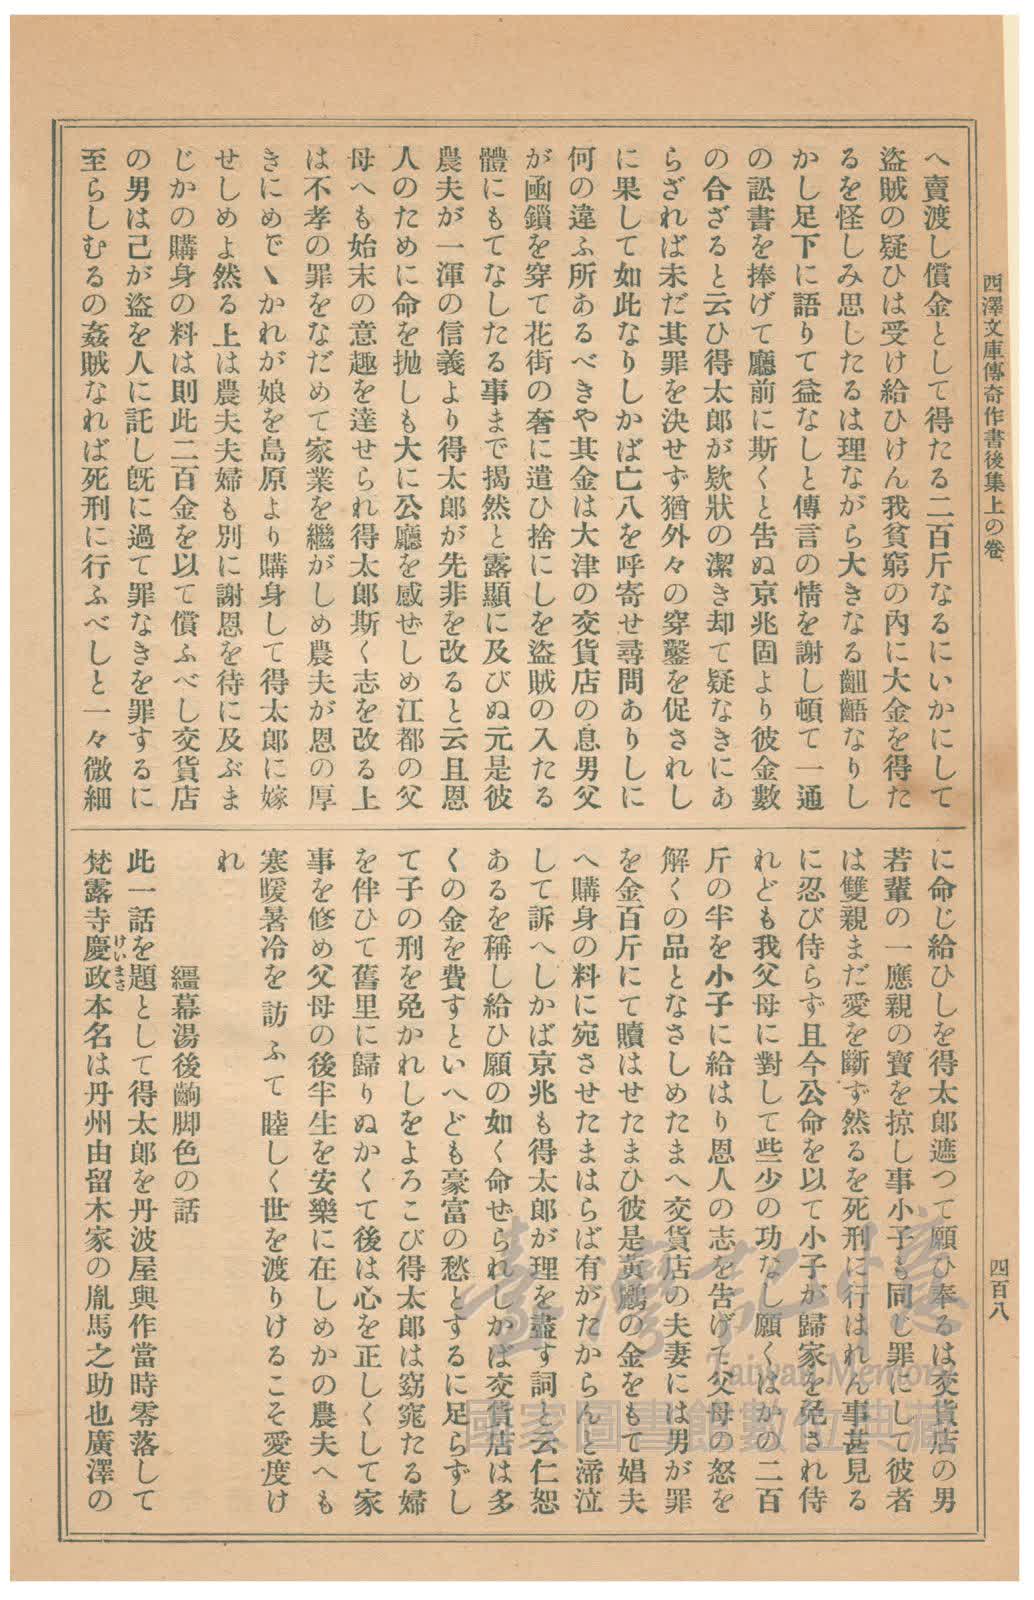 西澤文庫傳奇作書後集上の卷
四百八
へ賣渡し償金として得たる二百斤なるにいかにして
盜賊の疑ひは受け給ひけん我貧窮の內に大金を得た
るを怪しみ思したるは理ながら大きなる齟齬なりし
かし足下に語りて益なしと傳言の情を謝し頓て一通
の訟書を捧げて廳前に斯くと吿ぬ京兆固より彼金數
の合ざると云ひ得太郎が欵狀の潔き却て疑なきにあ
らざれば未だ其罪を決せず猶外々の穿鑿を促されし
に果して如此なりしかば亡八を呼寄せ尋問ありしに
何の違ふ所あるべきや其金は大津の交貨店の息男父
が凾鎖を穿て花街の奢に遣ひ捨にしを盜賊の入たる
體にもてなしたる事まで揭然と露顯に及びぬ元是彼
農夫が一渾の信義より得太郎が先非を改ると云且恩
人のために命を抛しも大に公廳を感ぜしめ江都の父
母へも始末の意趣を達せられ得太郎斯く志を改る上
は不孝の罪をなだめて家業を繼がしめ農夫が恩の厚
きにめでヽかれが娘を島原より購身して得太郎に嫁
せしめよ然る上は農夫夫婦も別に謝恩を待に及ぶま
じかの購身の料は則此二百金を以て償ふべし交貨店
の男は己が盜を人に託し旣に過て罪なきを罪するに
至らしむるの姦賊なれば死刑に行ふべしと一々微細
に命じ給ひしを得太郎遮つて願ひ奉るは交貨店の男
若輩の一應親の寶を掠し事小子も同じ罪にして彼者
は雙親まだ愛を斷ず然るを死刑に行はれん事甚見る
に忍び侍らず且今公命を以て小子が歸家を免され侍
れども我父母に對して些少の功なし願くはかの二百
斤の半を小子に給はり恩人の志を吿げて父母の怒を
解くの品となさしめたまへ交貨店の夫妻には男が罪
を金百斤にて贖はせたまひ彼是黃鸝の金をもて娼夫
へ購身の料に宛させたまはらば有がたからんと渧泣
して訴へしかば京兆も得太郎が理を盡す詞と云仁恕
あるを稱し給ひ願の如く命ぜられしかば交貨店は多
くの金を費すといへども豪富の愁とするに足らずし
て子の刑を免かれしをよろこび得太郎は窈窕たる婦
を伴ひて舊里に歸りぬかくて後は心を正しくして家
事を修め父母の後半生を安樂に在しめかの農夫へも
寒暖暑冷を訪ふて睦しく世を渡りけるこそ愛度け
れ
繮幕湯後齣脚色の話
此一話を題として得太郎を丹波屋與作當時零落して
梵露寺慶政本名は丹州由留木家の胤馬之助也廣澤の
けいまさ
臺灣記憶
Taiwan Memory
國家圖書館數位典藏